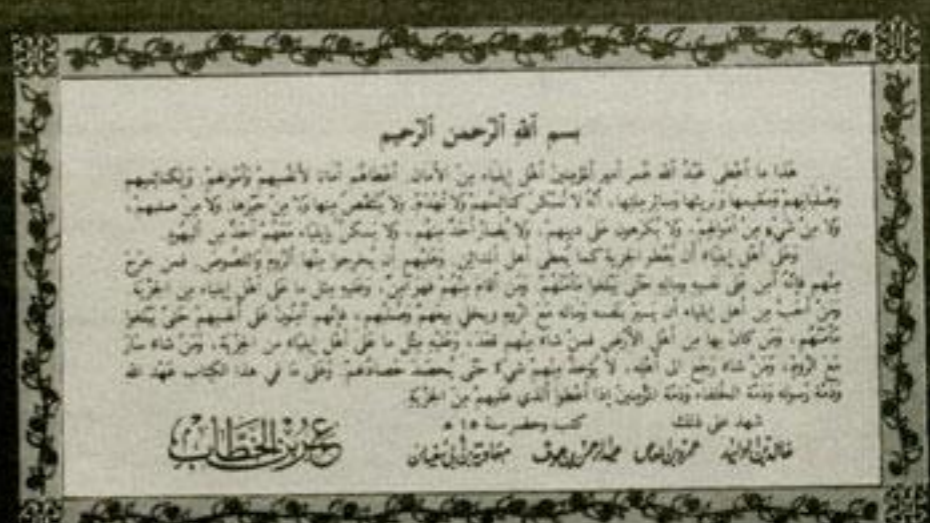 بسم ألله ألرّحمن ألرّحيم
هٰذا ما أعْطى عَبْدُ ألله عُمر أمير ألمؤمنينَ أهْل إيلياء مِنَ الأمَان. أعْطاهُم أمَاناً لأنْفُسِهِمْ وأمْوالهمْ. ولكنائسِهم
وصُلبانِهِمْ وسَقِيمِها وبَريئها وسائِر مِلّتها، أنّهُ لا تُسْكَن كنائِسُهُمْ ولا تُهْدَمُ. ولا يُنْتَقَصُ مِنها ولا مِنْ حَيّزها. ولا مِنْ صليبهمْ،
ولا مِنْ شَيْءٍ مِنْ أمْوَالهمْ. ولا يُكْرهونَ على دينِهمْ. ولا يُضَارّ أحَدٌ مِنهم، ولا يسكن بإيلياء مَعَهُمْ أحَدٌ مِن أليهود
وعَلى أهْل إيلياء أن يُعْطُوا الجزية كما يُعطي أهل ألمدائِن. وعَليهِم أن يخرجوا مِنْها ألرّومَ وأللصُوصَ. فمن خرَجَ
مِنْهم فإنّهُ آمِن على نفسِهِ ومالِهِ حتّى يَبْلغوا مأمَنَهُمْ. ومَن أقامَ مِنْهم فهو آمِنٌ. وعَليهِ مِثل ما على أهْل إيلياء مِن الجزْيَة
ومَنْ أحَبّ مِن أهل إيلياء أن يسيرَ بنفسِه ومالِه مَعَ الرّوم ويخلي بيعهم وصلبهم، فإنّهم آمِنُونَ على أنفسِهم حتّى يَبْلغوا
مَأمَنَهُم، ومَن كانَ بها مِن أهل الأرْض فمنْ شاءَ مِنهم قعَدَ. وعَليْهِ مِثْل ما على أهل إيلياء من الجزيَة، ومَنْ شاءَ سارَ
مَع الرّوم، ومَنْ شاءَ رَجعَ إلى أهْلِه، لا يُؤخذ مِنْهم شَيْءٌ حَتّى يحصد حصادهم. وعَلى ما في هذا الكتاب عَهْد الله
وذمّة رسوله وذمّة الخلفاء وذمّة المؤمِنينَ إذا أعْطوا ألّذي عَليهم مِن الجزْيَةِ
شهد على ذلك كتب وحضر سنة ١٥ هـ
خالد بن الوليد عمرو بن العاص عبد الرحمن بن عوف معاوية بن أبي سفيان
عمر بن الخطاب